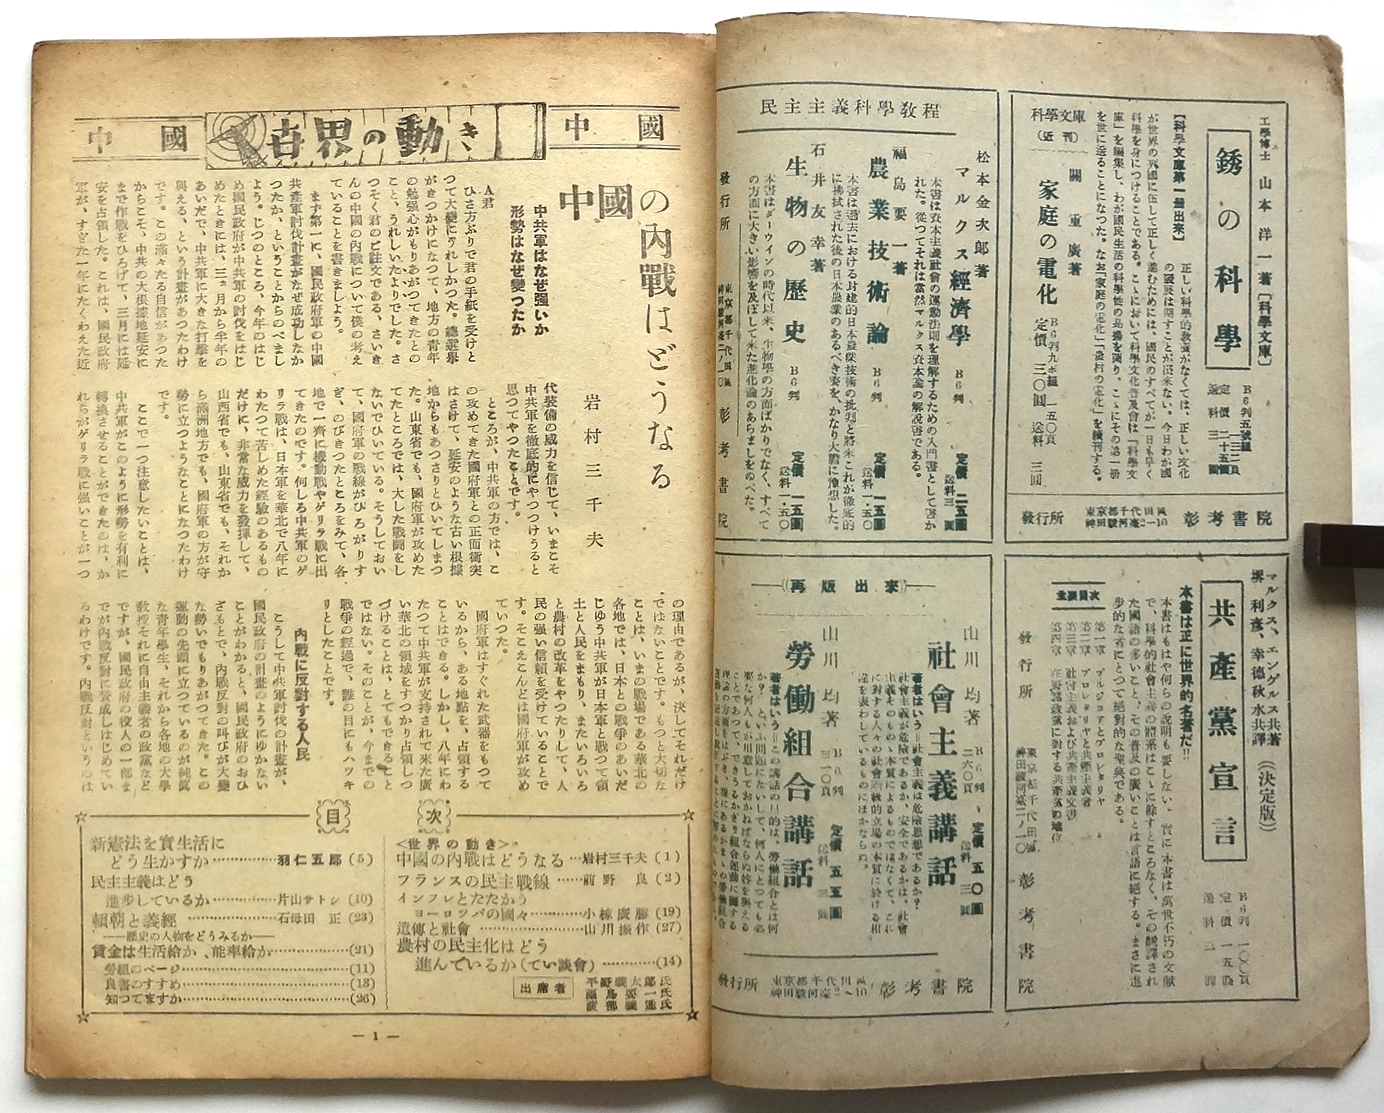 工學博士 山本洋一著 [科學文庫]
銹の科學
B6判五號組
定價 二十五圓
送料 三圓
【科學文庫第一冊出來】
正しい科學的教養がなくては、正しい文化
の發展は期すことが出來ない。今日わが國
が世界の列國に伍して正しく進むためには、國民のすべてが一日も早く
科學を身につけることである。こゝにおいて科學文化普及會は「科學文
庫」を編集し、わが國民生活の科學性の昂揚を圖り、こゝにその第一冊
を世に送ることになつた。なお「家庭の電化」「農村の電化」を續刊する。
科學文庫
(近刊)
關 重廣著
家庭の電化
B6判九ポ組 一五〇頁
定價 三〇圓 送料 三圓
發行所 東京都千代田區神田駿河臺2—10 彰考書院
マルクス、エンゲルス共著
堺利彦、幸德秋水共譯 (決定版)
共產黨宣言
B6判 一〇〇頁
定價 一五圓
本書は正に世界的名著だ!!
本書はもはや何らの說明も要しない。實に本書は萬世不朽の文獻
で、科學的社會主義の體系はこゝに餘すところなく、その飜譯され
た國語の多いこと、その普及の廣いことは言語に絕する。まさに進
步的な者にとつて絕對的な聖典である。
重要目次
第一章 ブルジョアとプロレタリヤ
第二章 プロレタリヤと共產主義者
第三章 社會主義および共產主義文書
第四章 在野諸政黨に對する共產黨の地位
發行所 東京都千代田區神田駿河臺二ノ一〇 彰考書院
民主主義科學教程
松本金次郎著
マルクス經濟學
B6判
定價 二五圓
送料 三圓
本書は資本主義社會の運動法則を理解するための入門書として書か
れた。從つてそれは當然マルクス資本論の解說書である。
福島要一著
農業技術論
B6判
定價 一五圓
送料 一・五〇
本書は過去における封建的日本農業技術の批判と將來これが徹底的
に拂拭された後の日本農業のあるべき姿を、かなり大膽に像想した。
石井友幸著
生物の歷史
B6判
定價 一五圓
送料 一・五〇
本書はダーウィンの時代以來、生物學の方面ばかりでなく、すべて
の方面に大きい影響を及ぼして來た進化論のあらましをのべた。
發行所 東京都千代田區神田駿河臺二ノ一〇 彰考書院
再版出來
山川 均著
社會主義講話
B6判
二六〇頁
定價 五〇圓
送料 三圓
著者はいう=社會主義は危險思想であるか?
社會主義が危險であるか、安全であるかは、社會
主義そのものゝ本質によるものではなくて、これ
に對する人々の社會階級的立場の本質に於ける相
違を表わしているものにほかならぬ。
山川 均著
勞働組合講話
B6判
定價 五五圓
送料 三圓
著者はいう=この講話の目的は、勞働組合とは何
か?という問題にたいして、何人にとつても必
要な何人もが用意しておかねばならぬ答を與える
ことであつて、できうるかぎり組合運動に關する
發行所 東京都千代田區神田駿河臺2—10 彰考書院
中國 世界の動き 中國
中國の內戰はどうなる
岩村三千夫
中共軍はなぜ强いか
形勢はなぜ變つたか
A君
ひさ方ぶりで君の手紙を受けと
つて大變にうれしかつた。總選擧
がきつかけになつて、地方の青年
の勉强心がもりあがつてきたとの
こと、うれしいたよりでした。さ
つそく君のご註文である、さいき
んの中國の內戰について僕の考え
ていることを書きましよう。
まず第一に、國民政府軍の中國
共產軍討伐計畫がなぜ成功しなか
つたか、ということからのべまし
よう。じつのところ、今年のはじ
め國民政府が中共軍の討伐をはじ
めたときには、三ヵ月から半年の
あいだで、中共軍に大きな打擊を
與える、という計畫があつたわけ
です。この滿々たる自信があつた
からこそ、中共の大根據地延安に
まで作戰をひろげて、三月には延
安を占領した。これは、國民政府
軍が、すぎた一年にたくわえた近
代裝備の威力を信じて、いまこそ
中共軍を徹底的にやつつけうると
思つてやつたことです。
ところが、中共軍の方では、こ
の攻めてきた國府軍との正面衝突
はさけて、延安のような古い根據
地からもあつさりとひいてしまつ
た。山東省でも、國府軍が攻めた
てたところでは、大した戰鬪をし
ないでひいている。そうしておい
て、國府軍の戰線がひろがりす
ぎ、のびきつたところをみて、各
地で一齊に機動戰やゲリラ戰に出
てきたのです。何しろ中共軍のゲ
リラ戰は、日本軍を華北で八年に
わたつて苦しめた經驗のあるもの
だけに、非常な威力を發揮して、
山西省でも、山東省でも、それか
ら滿洲地方でも、國府軍の方が守
勢に立つようなことになつたわけ
です。
ここで一つ注意したいことは、
中共軍がこのように形勢を有利に
轉換させることができたのは、か
れらがゲリラ戰に强いことが一つ
の理由であるが、決してそれだけ
ではないことです。もつと大切な
ことは、いまの戰場である華北の
各地では、日本との戰爭のあいだ
じゆう中共軍が日本軍と戰つて領
土と人民をまもり、またいろいろ
と農村の改革をやつたりして、人
民の强い信賴を受けていることで
す。そこえこんどは國府軍が攻め
ていつた。
國府軍はすぐれた武器をもつて
いるから、ある地點を、占領する
ことはできる。しかし、八年にわ
たつて中共軍が支持されて來た廣
い華北の領域をすつかり占領しつ
づけることは、とてもできること
ではない。そのことが、今までの
戰爭の經過で、誰の目にもハツキ
リとしたことです。
內戰に反對する人民
こうして中共軍討伐の計畫が、
國民政府の計畫のようにゆかない
ことがわかると、國民政府のおひ
ざもとで、內戰反對の叫びが大變
な勢いでもりあがつてきた。この
運動の先頭に立つているのが純眞
な青年學生、それから各地の大學
教授それに自由主義者の政黨など
ですが、國民政府の役人の一部ま
でが內戰反對に贊成しはじめてい
るわけです。內戰反對というのは
目次
<世界の動き>
中國の內戰はどうなる……岩村三千夫 (1)
フランスの民主戰線……前野 良 (2)
インフレとたたかう
ヨーロッパの國々……小椋廣勝 (19)
遺傳と社會……山川振作 (27)
農村の民主化はどう
進んでいるか(てい談會)……(14)
出席者
平野義太郎氏
福島要一氏
新憲法を實生活に
どう生かすか……羽仁五郎 (5)
民主主義はどう
進步しているか……片山サトシ (10)
賴朝と義經……石母田 正 (23)
—歷史の人物をどうみるか—
賃金は生活給か、能率給か……(21)
勞組のページ……(11)
良書のすすめ……(13)
知つてますか……(26)
— 1 —